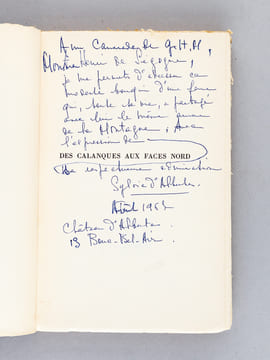 A mon Camarade du G.H.M,
Monsieur de Ségogne,
je me permets d'adresser ce
modeste bouquin d'une femme
qui, toute sa vie, a partagé
avec lui le même amour
de la Montagne, avec
l'expression de
DES CALANQUES AUX FACES NORD
sa respectueuse admiration
Sylvia d'Albertas.
1969
Château d'Albertas
13 Bouc-Bel-Air.